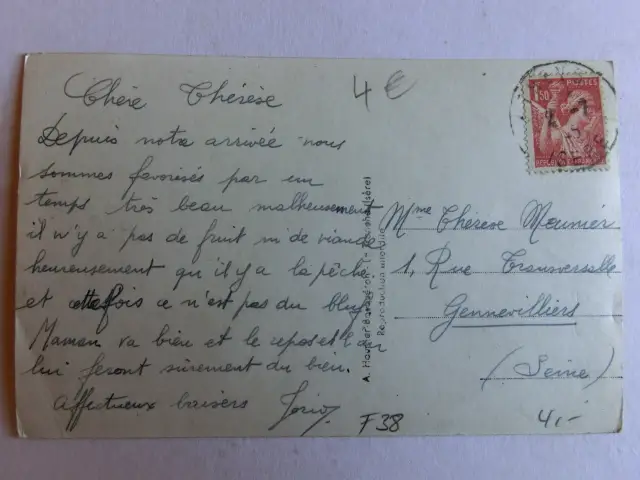 4€
Chère Thérèse
Depuis notre arrivée nous
sommes favorisés par un
temps très beau malheureusement
il n'y a pas de fruit ni de viande
heureusement qu'il y a la pêche
et cette fois ce n'est pas du bluff
Maman va bien et le repos et l'air
lui feront sûrement du bien.
Affectueux baisers
F38
A. Hourlier
(Isère)
Reproduction interdite
POSTES
1F50
Mme Thérèse Meunier
1, Rue Transversalle
Gennevilliers
(Seine)
4,-